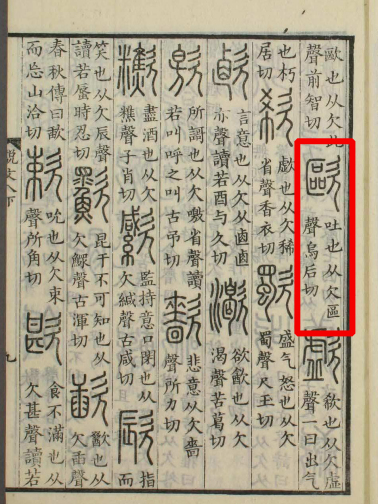 歐也从欠此
聲前智切
歐
吐也从欠區
聲烏后切
歔
欷也从欠虛
聲一曰出气
也朽
居切
欷
歔也从欠稀
省聲香衣切
歜
盛气怒也从欠
蜀聲尺玉切
言意也从欠卤卤
亦聲讀若酉與久切
欲歠也从欠
渴聲苦葛切
所謌也从欠噭省聲讀
若叫呼之叫古弔切
悲意从欠嗇
聲所力切
盡酒也从欠
聲子肖切
監持意口閉也从
欠緘聲古咸切
指
而
笑也从欠辰聲
讀若蜃時忍切
昆干不可知也从
欠鰥聲古渾切
歃
歠也从
欠臿聲
春秋傳曰歃
而忘山洽切
欶
吮也从欠束
聲所角切
歁
食不滿也从
欠甚聲讀若
說文八下
九